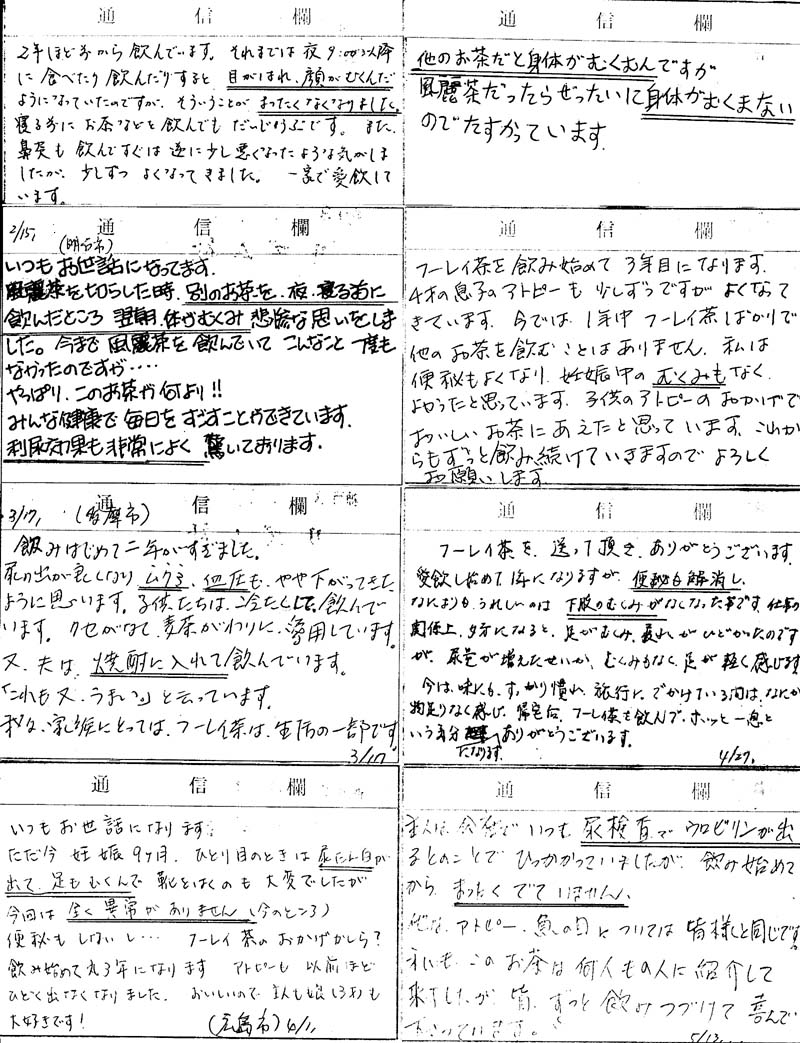 通信欄
2年ほど前から飲んでいます。それまでは夜9:00以降
に食べたり飲んだりすると目がはれ、顔がむくんだ
ようになっていたのですが、そういうことがまったくなくなりました。
寝る前にお茶などを飲んでもだいじょうぶです。また、
鼻炎も飲んですぐは逆に少し悪くなったような気がしま
したが、少しずつよくなってきました。一家で愛飲して
います。
通信欄
他のお茶だと身体がむくむんですが
風麗茶だったらぜったいに身体がむくまない
のでたすかっています.
通信欄
2/15, (明石市)
いつもお世話になってます.
風麗茶を切らした時.別のお茶を.夜.寝る前に
飲んだところ翌朝.体がむくみ悲惨な思いをしま
した。今まで風麗茶を飲んでいてこんなこと一度も
なかったのですが・・・・
やっぱり.このお茶が何より!!
みんな健康で毎日をすごすことができています.
利尿効果も非常によく驚いております.
通信欄
フーレイ茶を飲み始めて3年目になります.
4才の息子のアトピーも少しずつですがよくなって
きています.今では.1年中フーレイ茶ばかりで
他のお茶を飲むことはありません.私は
便秘もよくなり.妊娠中のむくみもなく.
よかったと思っています.子供のアトピーのおかげで
おいしいお茶にあえたと思っています.これか
らもずっと飲み続けていきますのでよろしく
お願いします.
通信欄
3/17, (多摩市)
飲みはじめて二年がすぎました。
尿の出が良くなりむくみ、血圧も、やや下がってきた
ように思います。子供たちは、冷たくして、飲んで
います。クセがなく麦茶がわりに、愛用しています。
又、夫は、焼酎に入れて飲んでいます。
「これも又、うまい。」と云っています。
私達、家族にとっては、フーレイ茶は、生活の一部です。
3/17
通信欄
フーレイ茶を、送って頂き、ありがとうございます.
愛飲し始めて1年になりますが、便秘も解消し、
なによりも、うれしいのは下肢のむくみがなくなった事です.仕事の
関係上、夕方になると、足がむくみ、疲れがひどかったのです
が、尿量が増えたせいか、むくみもなく、足が軽く感じます
今は、味にも、すっかり慣れ、旅行に、でかけている間は、なにか
物足りなく感じ、帰宅后、フーレイ茶を飲んで、ホッと一息と
いう気分になります.ありがとうございます.
4/27,
通信欄
いつもお世話になります.
ただ今妊娠9ヶ月.ひとり目のときは尿たん白が
出て、足もむくんで靴をはくのも大変でしたが
今回は全く異常がありません(今のところ)
便秘もしないし… フーレイ茶のおかげかしら?
飲み始めて丸3年になります アトピーも以前ほど
ひどく出なくなりました.おいしいので主人も娘(3才)も
大好きです! (広島市)4/1,
通信欄
主人は会社でいつも尿検査でウロビリンが出
るとのことでひっかかっていましたが、飲み始めて
から、まったくでていません、
アトピー、魚の目については皆様と同じです
私も、このお茶は何人もの人に紹介して
来ましたが、皆、ずっと飲みつづけて喜んで
下さっています。
5/13,